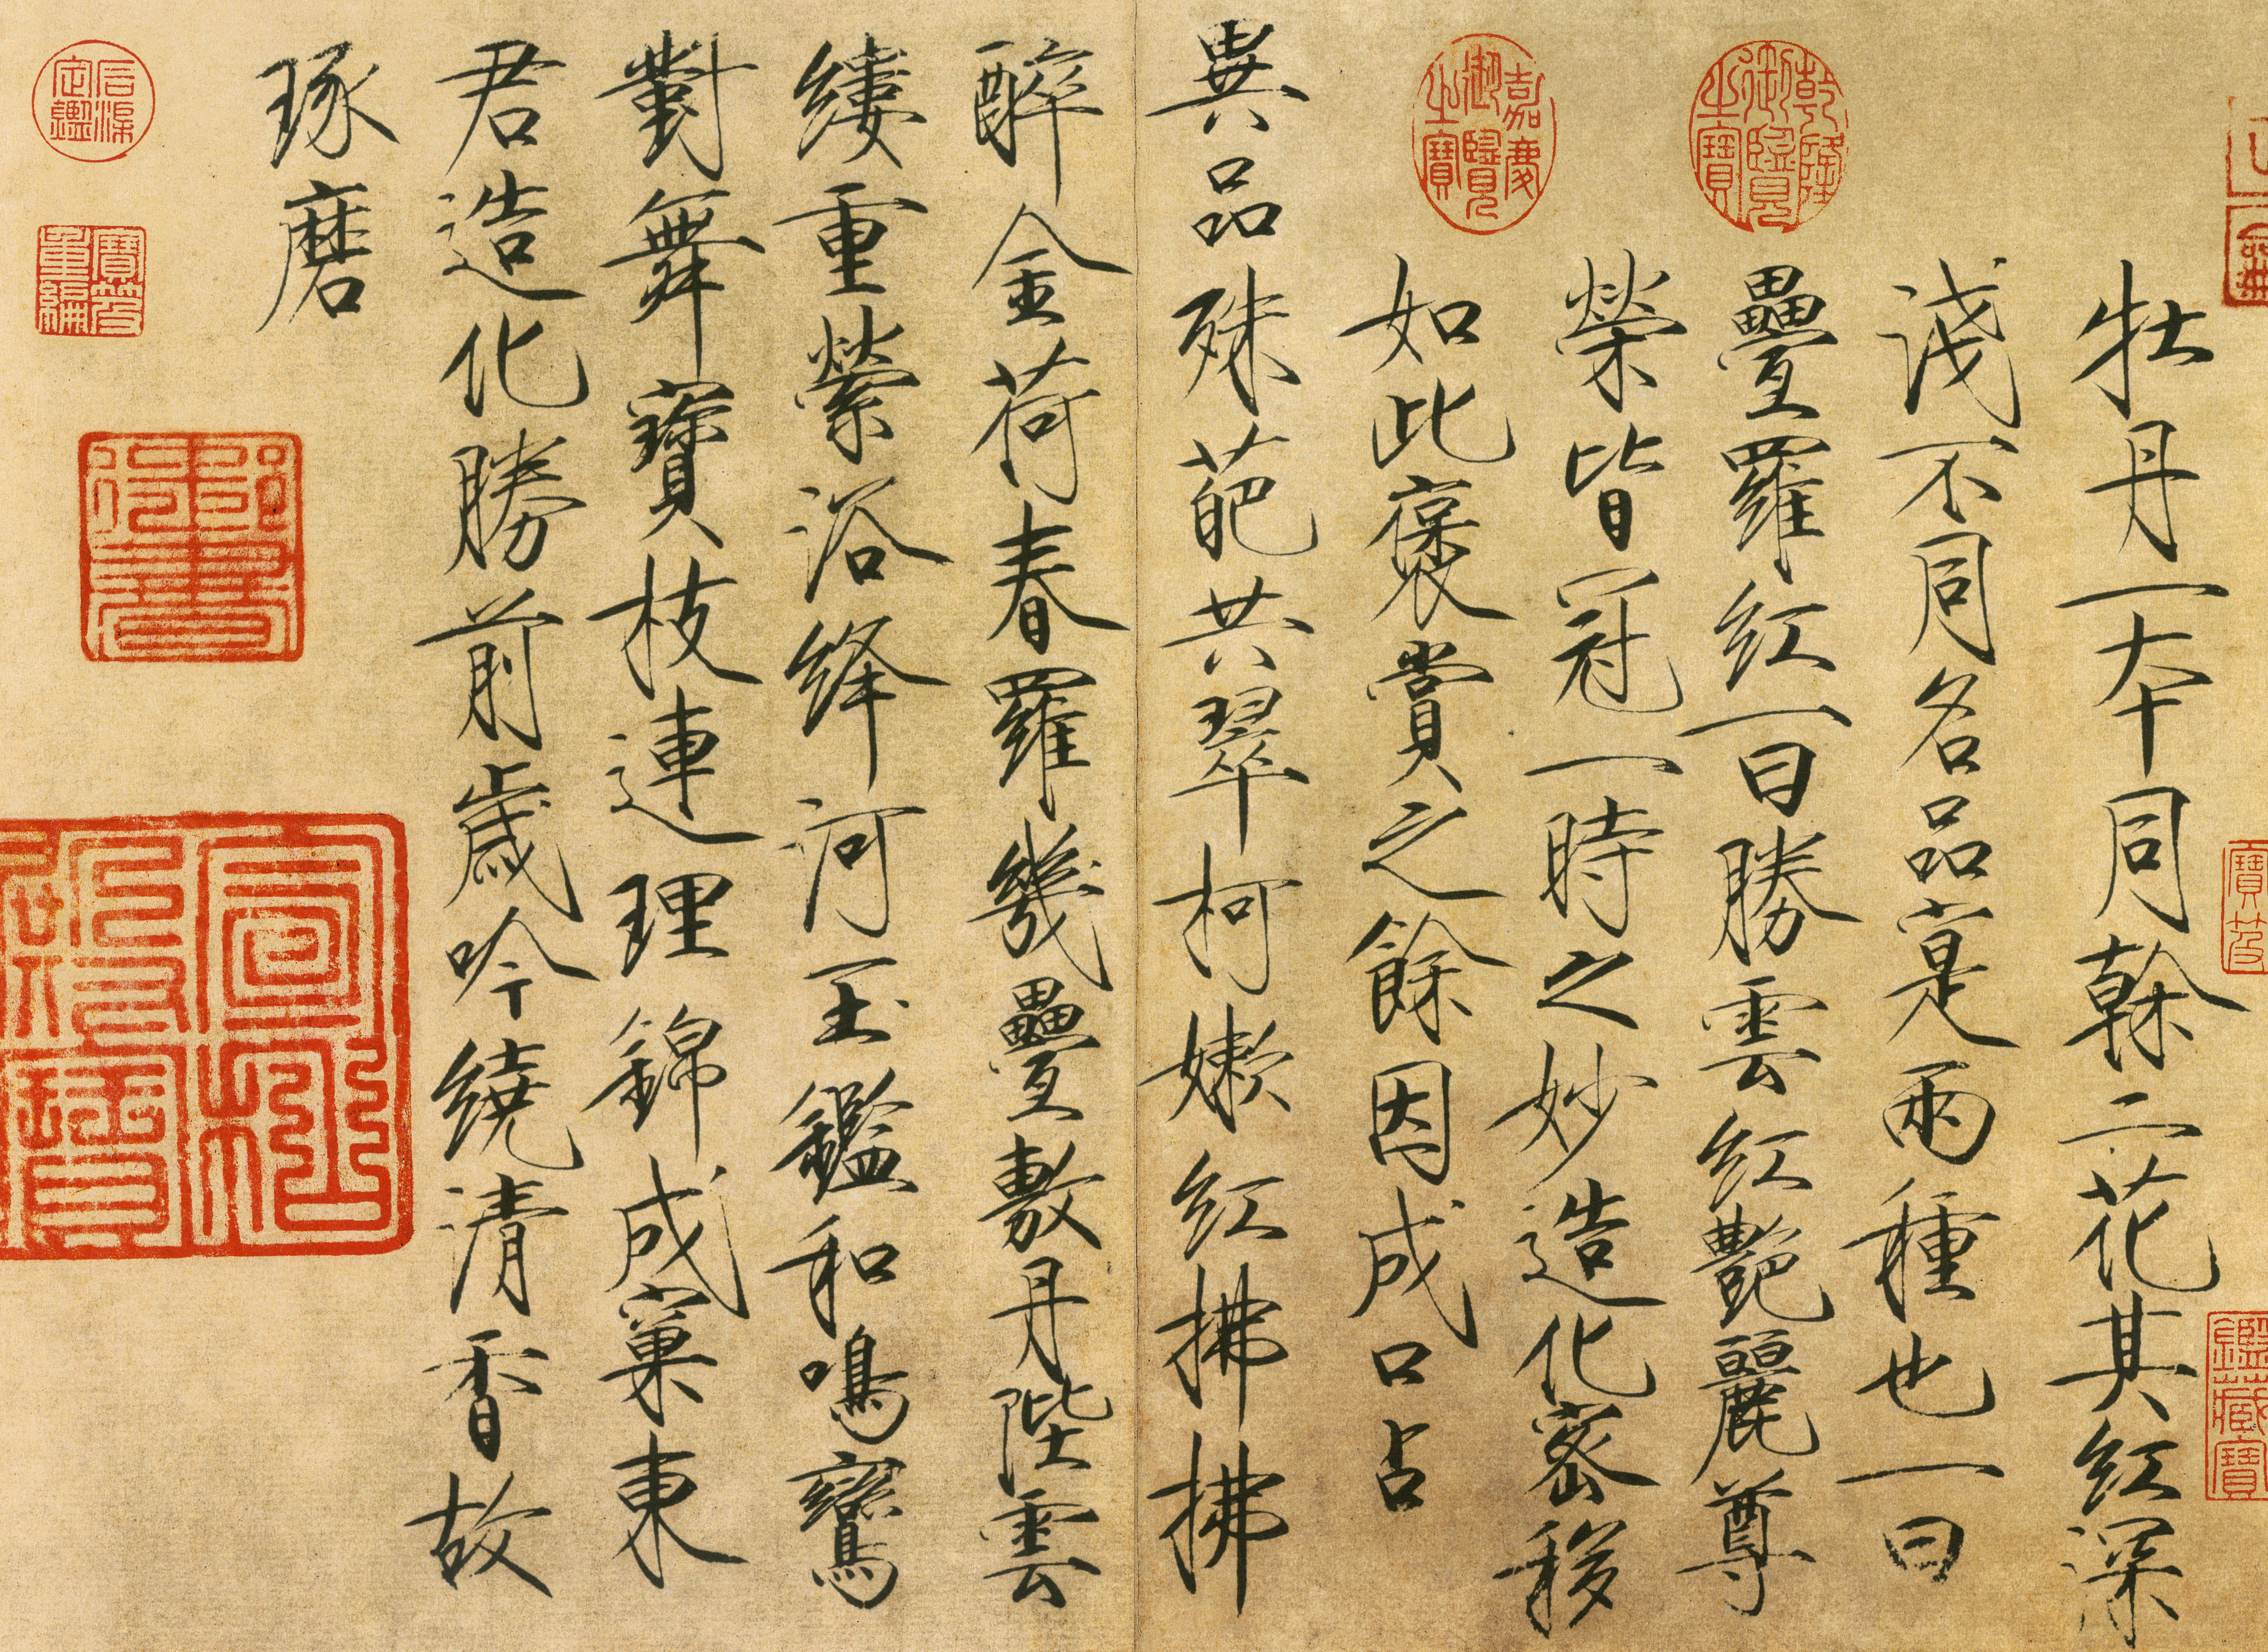 牡丹一本同榦二花其紅深
淺不同名品寔兩種也一曰
疊羅紅一曰勝雲紅艷麗尊
榮皆冠一時之妙造化密移
如此褒賞之餘因成口占
異品殊葩共翠柯嫩紅拂拂
醉金荷春羅幾疊敷丹陛雲
縷重縈浴絳河玉鑑和鳴鸞
對舞寶枝連理錦成窠東
君造化勝前歲吟繞清香故
琢磨
乾隆御覽之寶
嘉慶御覽之寶
石渠定鑑
寶笈重編